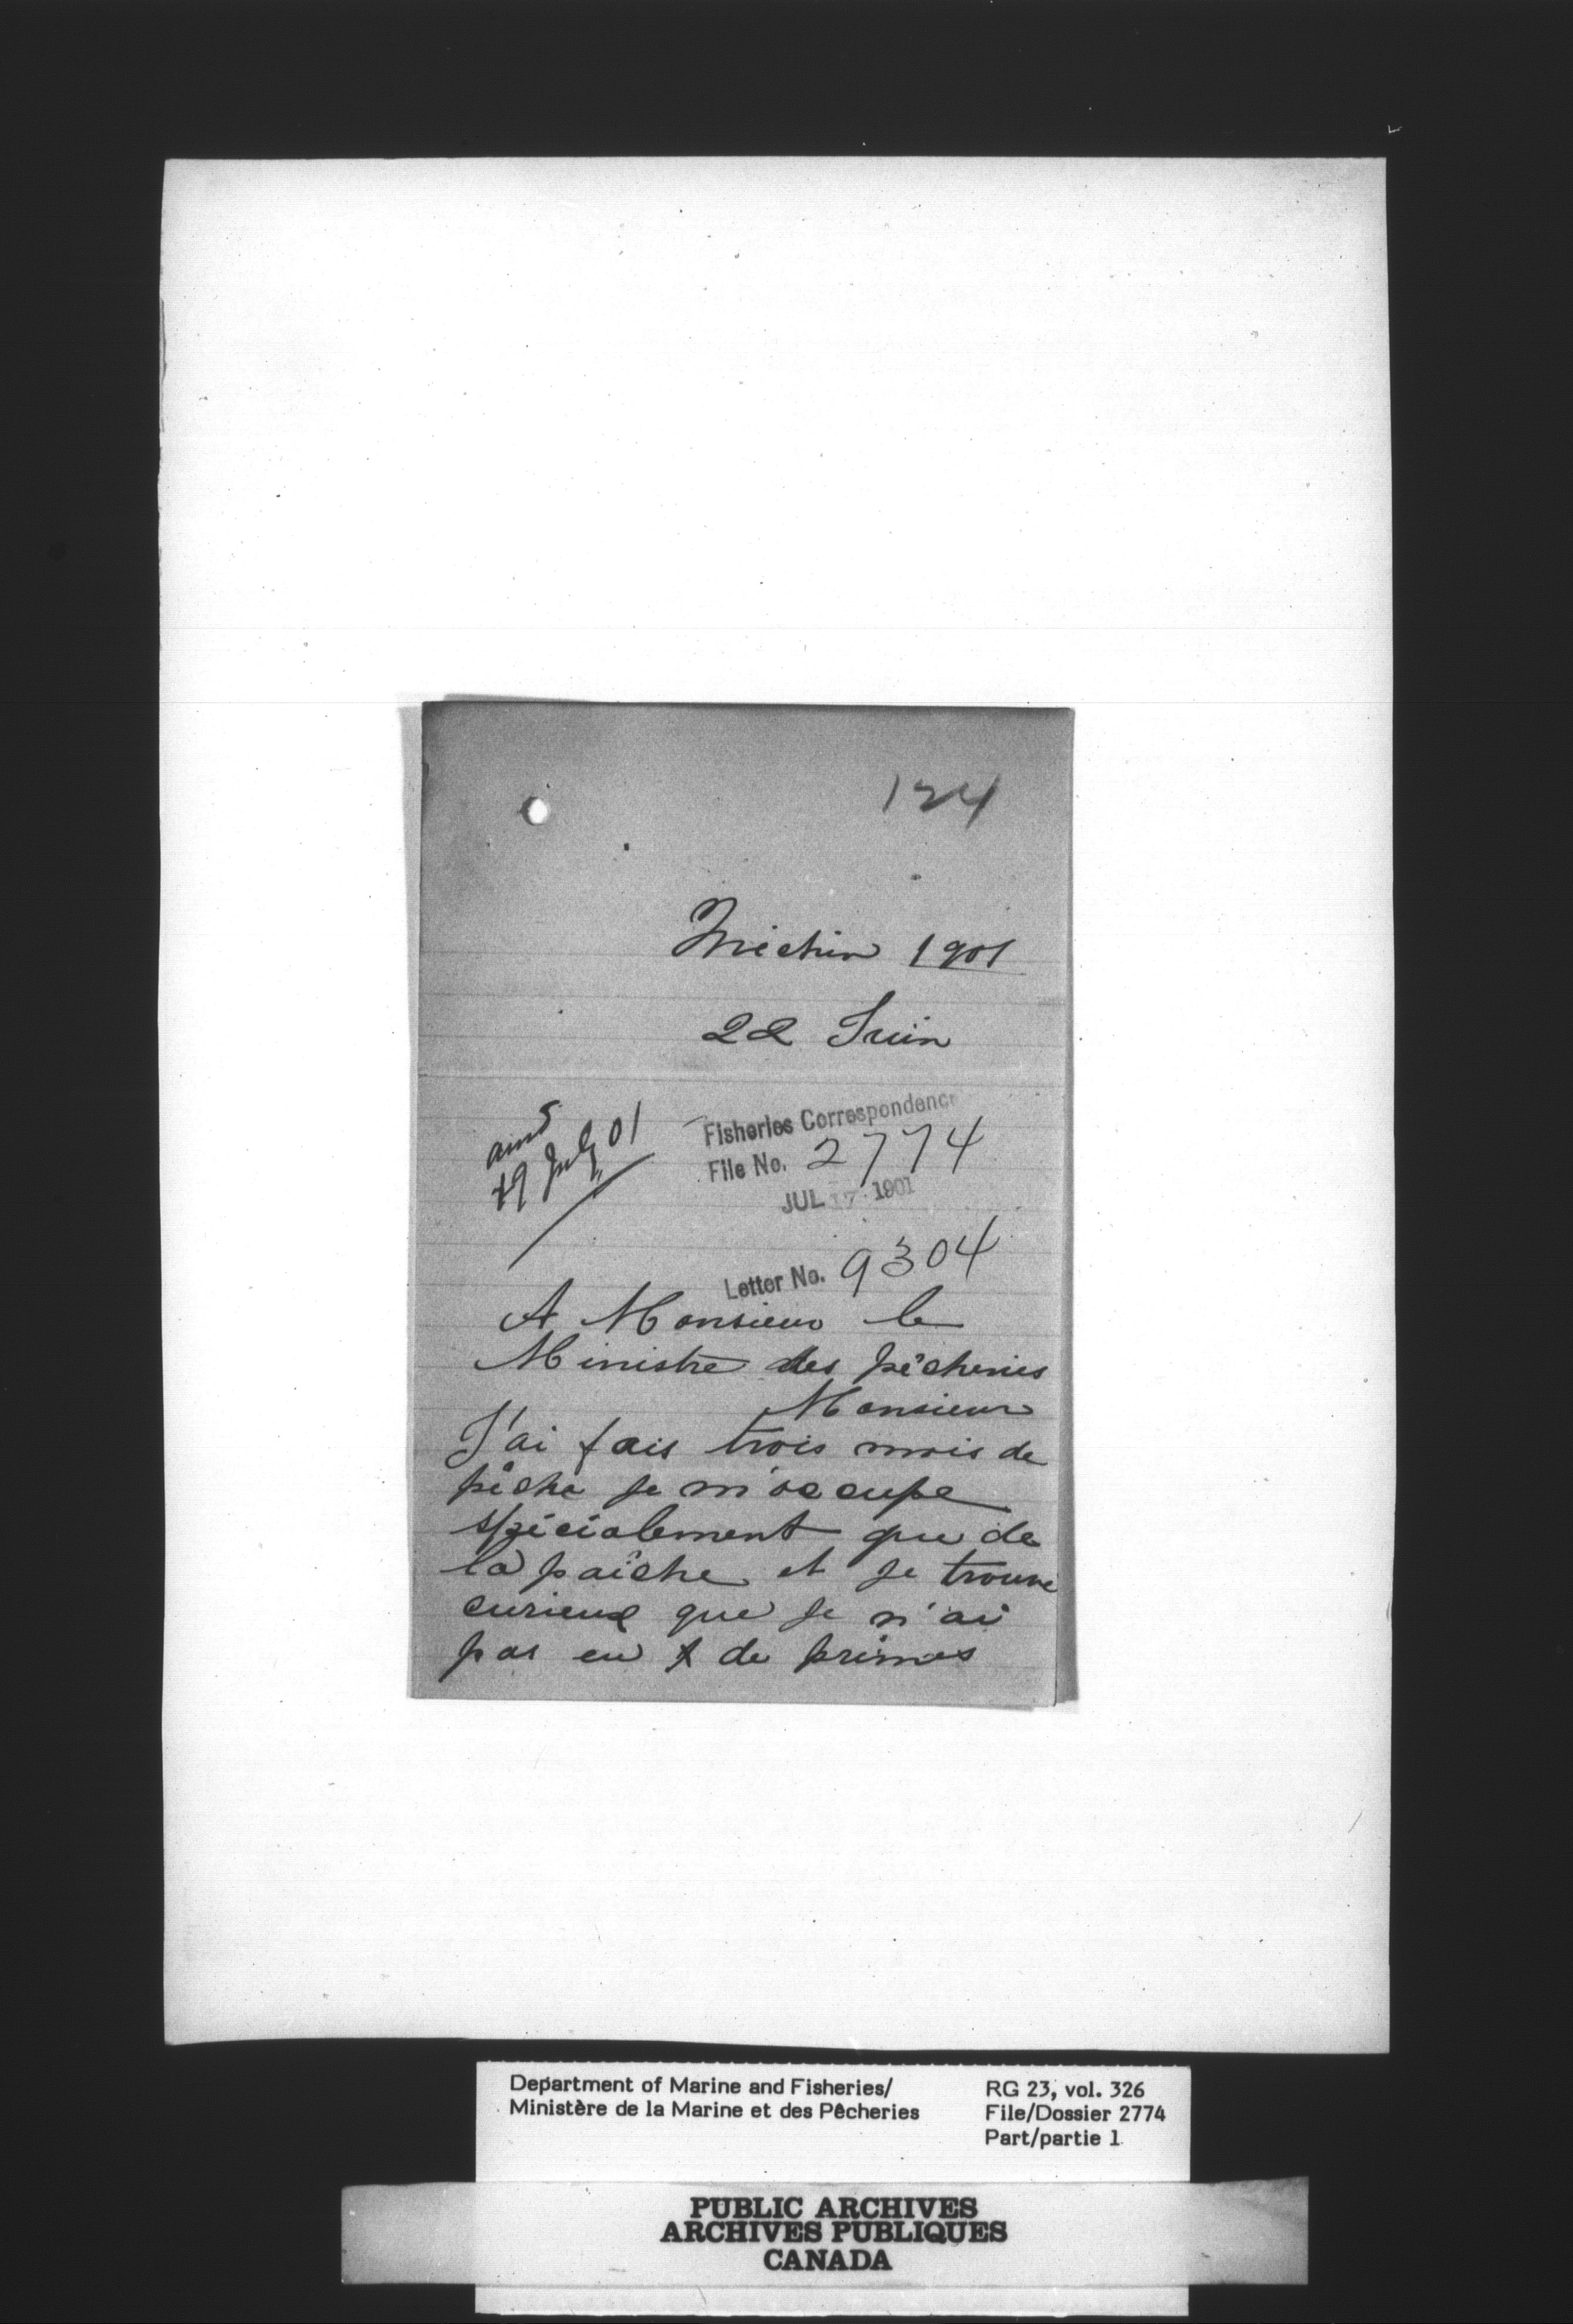 124
Mechin 1901
22 Juin
ansd
19 July 01
Fisheries Correspondence
File No. 2774
JUL 17 1901
Letter No. 9304
A Monsieur le
Ministre des pêcheries
Monsieur
J'ai fais trois mois de
pêche je m'occupe
spécialement que de
la paîche et je trouve
curieux que je n'ai
pas eu de primes
Department of Marine and Fisheries/
Ministère de la Marine et des Pêcheries
RG 23, vol. 326
File/Dossier 2774
Part/partie 1
PUBLIC ARCHIVES
ARCHIVES PUBLIQUES
CANADA